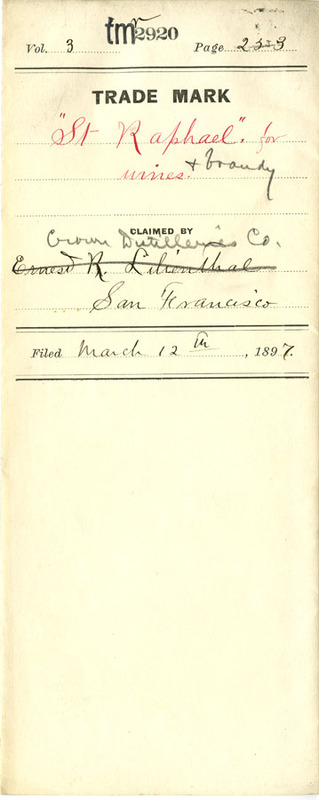 tm 2920
Vol. 3 Page 253
TRADE MARK
"St Raphael". for
wines. & brandy
CLAIMED BY
Crown Distilleries Co.
Ernest R. Lilienthal
San Francisco
Filed March 12th, 1897.